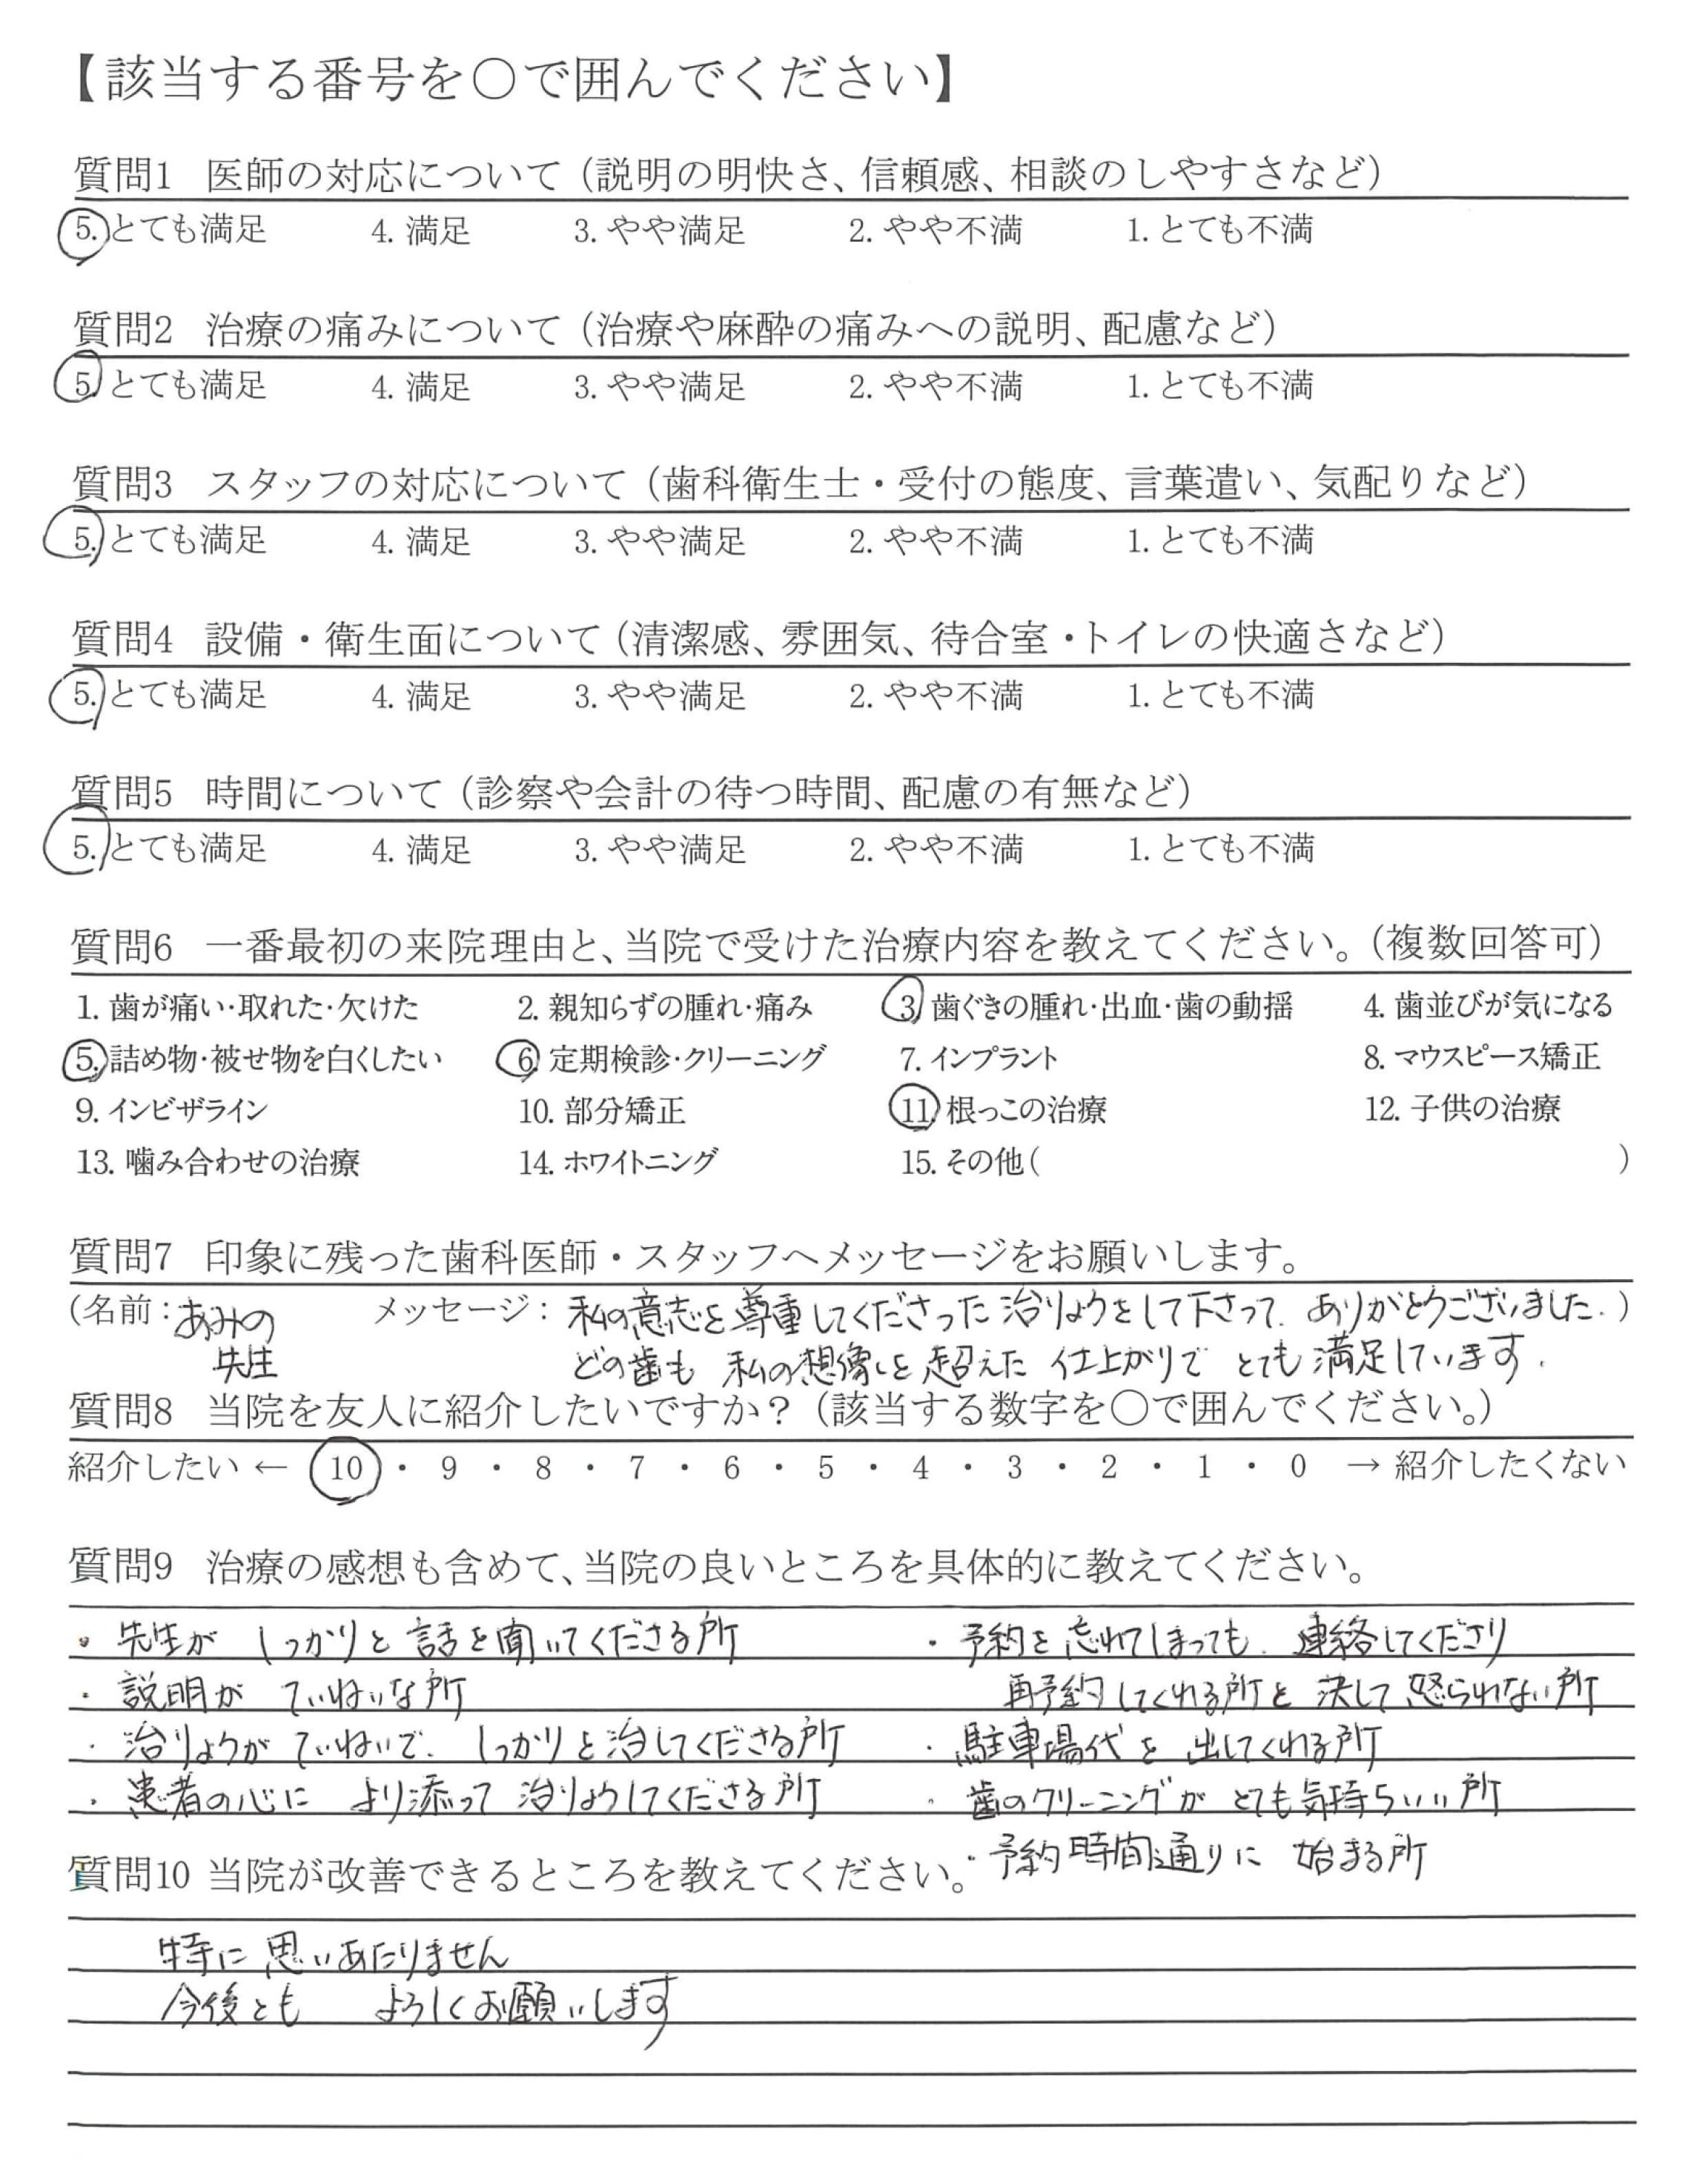 【該当する番号を○で囲んでください】
質問1 医師の対応について（説明の明快さ、信頼感、相談のしやすさなど）
5. とても満足 4. 満足 3. やや満足 2. やや不満 1. とても不満
質問2 治療の痛みについて（治療や麻酔の痛みへの説明、配慮など）
5. とても満足 4. 満足 3. やや満足 2. やや不満 1. とても不満
質問3 スタッフの対応について（歯科衛生士・受付の態度、言葉遣い、気配りなど）
5. とても満足 4. 満足 3. やや満足 2. やや不満 1. とても不満
質問4 設備・衛生面について（清潔感、雰囲気、待合室・トイレの快適さなど）
5. とても満足 4. 満足 3. やや満足 2. やや不満 1. とても不満
質問5 時間について（診察や会計の待つ時間、配慮の有無など）
5. とても満足 4. 満足 3. やや満足 2. やや不満 1. とても不満
質問6 一番最初の来院理由と、当院で受けた治療内容を教えてください。（複数回答可）
1. 歯が痛い・取れた・欠けた 2. 親知らずの腫れ・痛み 3. 歯ぐきの腫れ・出血・歯の動揺 4. 歯並びが気になる
5. 詰め物・被せ物を白くしたい 6. 定期検診・クリーニング 7. インプラント 8. マウスピース矯正
9. インビザライン 10. 部分矯正 11. 根っこの治療 12. 子供の治療
13. 噛み合わせの治療 14. ホワイトニング 15. その他（ ）
質問7 印象に残った歯科医師・スタッフへメッセージをお願いします。
（名前：あみの メッセージ：私の意志を尊重してくださった治りょうをして下さって、ありがとうございました。）
先生 どの歯も 私の想像を超えた 仕上がりで とても満足しています。
質問8 当院を友人に紹介したいですか？（該当する数字を○で囲んでください。）
紹介したい ← 10 ・ 9 ・ 8 ・ 7 ・ 6 ・ 5 ・ 4 ・ 3 ・ 2 ・ 1 ・ 0 → 紹介したくない
質問9 治療の感想も含めて、当院の良いところを具体的に教えてください。
・先生が しっかりと 話を聞いてくださる所 ・予約を忘れてしまっても、連絡してくださり
・説明が ていねいな所 再予約してくれる所と 決して怒られない所
・治りょうが ていねいで、しっかりと治してくださる所 ・駐車場代を 出してくれる所
・患者の心に より添って 治りょうしてくださる所 ・歯のクリーニングが とても気持ちいい所
・予約時間通りに 始まる所
質問10 当院が改善できるところを教えてください。
特に 思いあたりません
今後とも よろしくお願いします